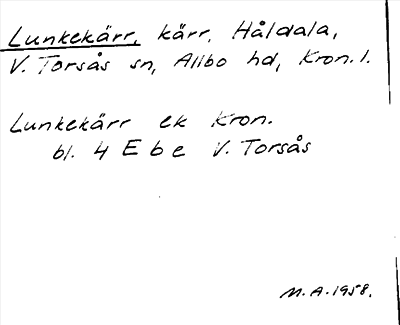 Lunkekärr, kärr, Håldala,
V. Torsås sn, Allbo hd, Kron. l.
Lunkekärr ek Kron.
bl. 4 E b e V. Torsås
M.A. 1958.